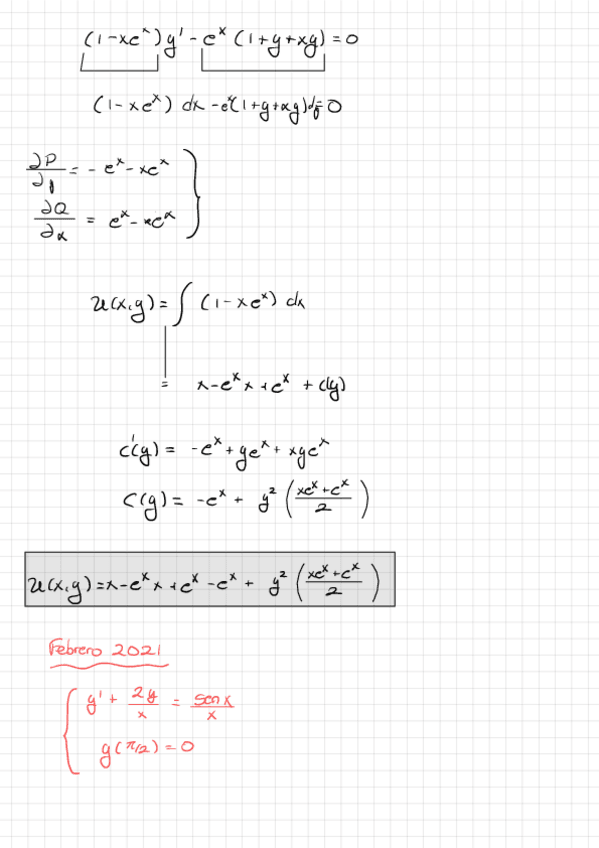 (1-xeˣ)y' - eˣ(1+y+xy) = 0
(1-xeˣ) dx - eˣ(1+y+xy)dy = 0
∂P/∂y = - eˣ - xeˣ
∂Q/∂x = eˣ - xeˣ
u(x,y) = ∫ (1-xeˣ) dx
= x - eˣx + eˣ + c(y)
c'(y) = -eˣ + yeˣ + xyeˣ
c(y) = -eˣ + y² ((xeˣ+eˣ)/2)
u(x,y) = x - eˣx + eˣ - eˣ + y² ((xeˣ+eˣ)/2)
Febrero 2021
y' + 2y/x = sen x/x
y(π/2) = 0